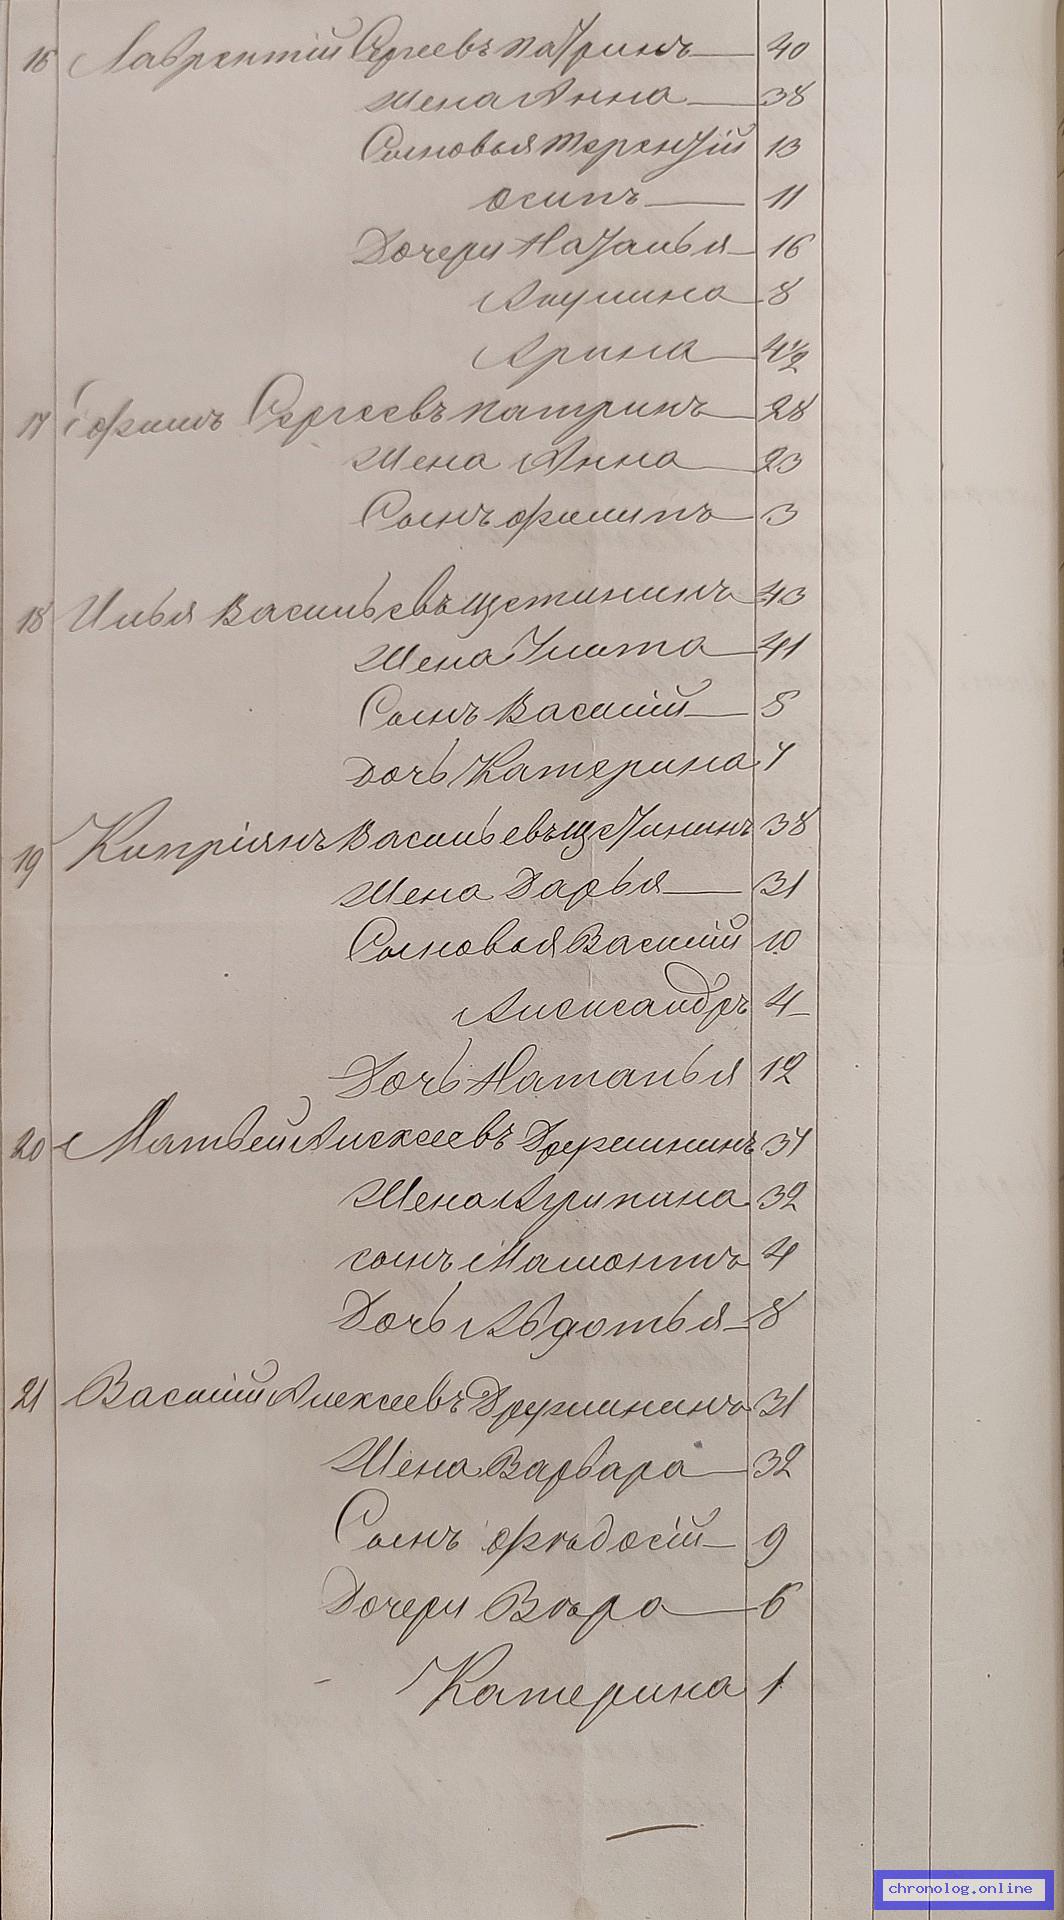 16 Лаврентій Сергеевъ Патринъ 40
Жена Анна 38
Сыновья Терентій 13
Осипъ 11
Дочери Наталья 16
Акулина 8
Арина 4½
17 Ефимъ Сергеевъ Патринъ 28
Жена Анна 23
Сынъ Филипъ 3
18 Илья Васильевъ Щетининъ 43
Жена Улита 41
Сынъ Василій 8
Дочь Катерина
19 Кипріянъ Васильевъ Щетининъ 38
Жена Дарья 31
Сыновья Василій 10
Александръ 4
Дочь Наталья 12
20 Матвей Алексеевъ Дружининъ
Жена Агрипина 32
сынъ Мамонтъ 4
Дочь Авдотья 8
21 Василій Алексеевъ Дружининъ 31
Жена Варвара 32
Сынъ Фѣдосій 9
Дочери Вѣра 6
Катерина 1
chronolog.online